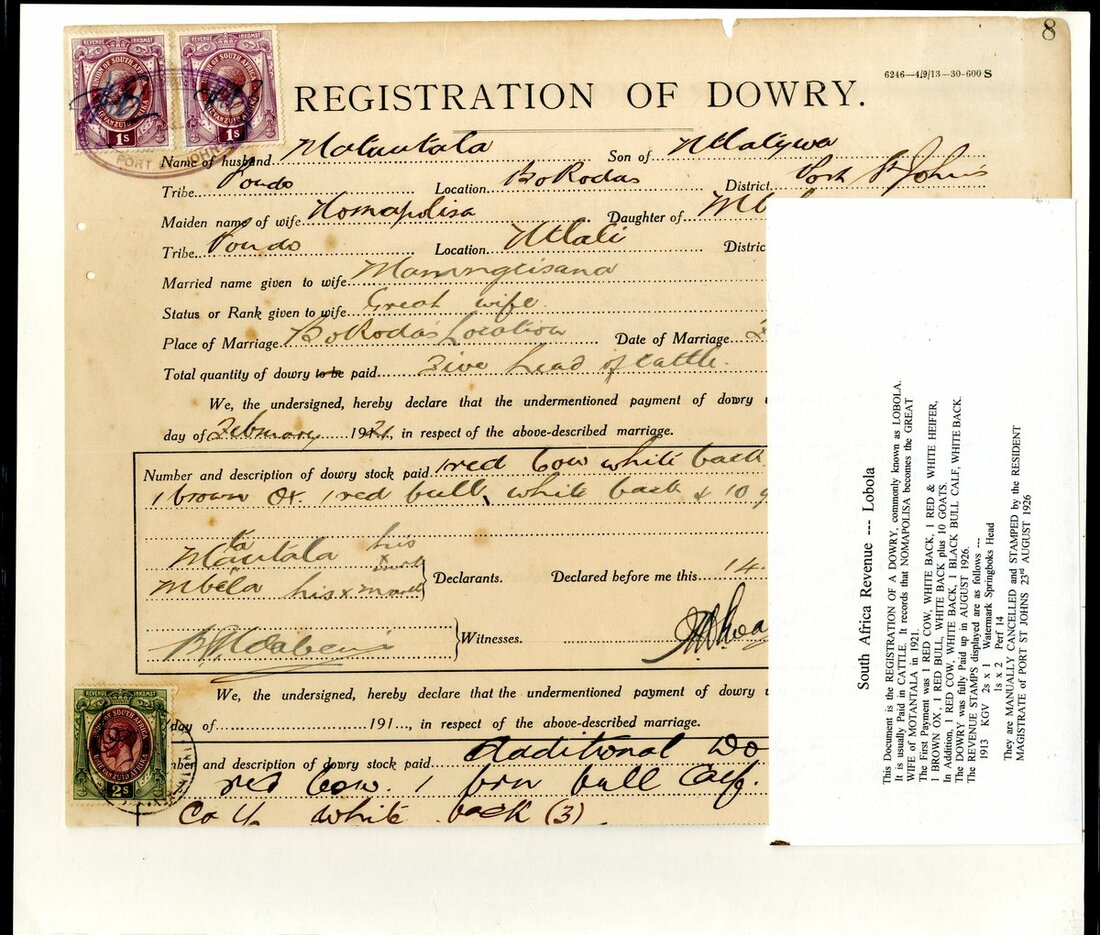 8
6246—4/9/13—30-600 S
REVENUE INKOMST
UNION OF SOUTH AFRICA
UNIE VAN ZUID AFRIKA
1s
REVENUE INKOMST
UNION OF SOUTH AFRICA
UNIE VAN ZUID AFRIKA
1s
PORT ST JOHNS
REGISTRATION OF DOWRY.
Name of husband Motautala Son of Ntlatywa
Tribe Pondo Location BoRodas District Port St Johns
Maiden name of wife Nomapolisa Daughter of Mb
Tribe Pondo Location Ntlali Distric
Married name given to wife
Status or Rank given to wife Great wife
Place of Marriage BoRoda's Location Date of Marriage
Total quantity of dowry to be paid Five head of cattle.
We, the undersigned, hereby declare that the undermentioned payment of dowry
day of February 1921, in respect of the above-described marriage.
Number and description of dowry stock paid 1 red cow white back
1 brown Ox. 1 red bull, white back & 10 g
Mautala his
ta x mark
Mbela his x mark
Declarants. Declared before me this 14
Witnesses.
We, the undersigned, hereby declare that the undermentioned payment of dowry
day of 191..., in respect of the above-described marriage.
REVENUE INKOMST
UNION OF SOUTH AFRICA
UNIE VAN ZUID AFRIKA
2s
ber and description of dowry stock paid Additional Do
red Cow. 1 brn bull Calf.
Calf white back (3)
South Africa Revenue --- Lobola
This Document is the REGISTRATION OF A DOWRY, commonly known as LOBOLA.
It is usually Paid in CATTLE. It records that NOMAPOLISA becomes the GREAT
WIFE of MOTANTALA in 1921.
The First Payment was 1 RED COW, WHITE BACK, 1 RED & WHITE HEIFER,
1 BROWN OX, 1 RED BULL, WHITE BACK plus 10 GOATS.
In Addition, 1 RED COW, WHITE BACK, 1 BLACK BULL CALF, WHITE BACK.
The DOWRY was fully Paid up in AUGUST 1926.
The REVENUE STAMPS displayed are as follows ---
1913 KGV 2s x 1 Watermark Springboks Head
1s x 2 Perf 14
They are MANUALLY CANCELLED and STAMPED by the RESIDENT
MAGISTRATE of PORT ST JOHNS 23rd AUGUST 1926